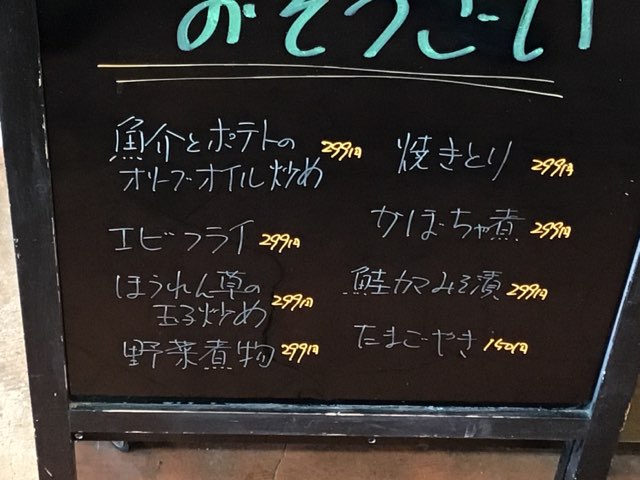 おそうざい
魚介とポテトの
オリーブオイル炒め 299円
エビフライ 299円
ほうれん草の
玉子炒め 299円
野菜煮物 299円
焼きとり 299円
かぼちゃ煮 299円
鮭カマみそ漬 299円
たまごやき 150円